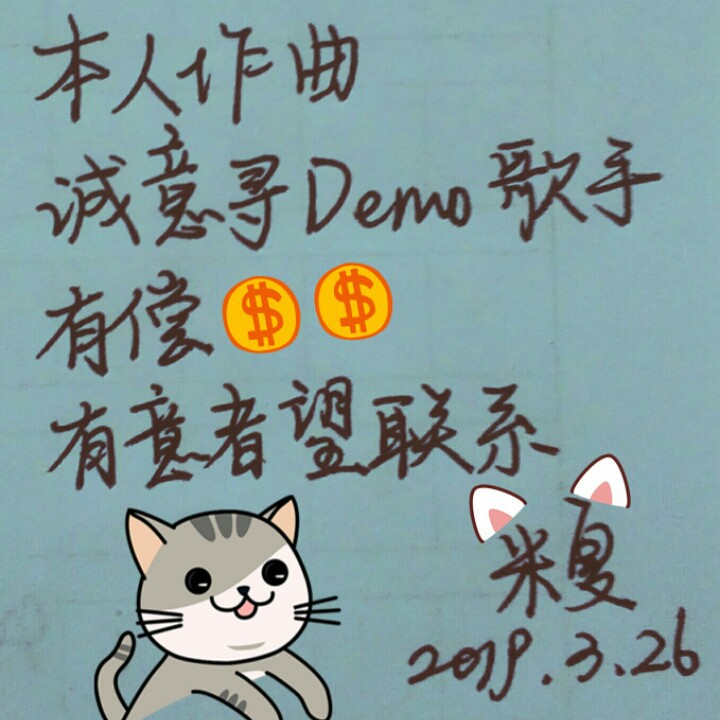 本人作曲
诚意寻Demo歌手
有偿$$
有意者望联系
米夏
2019.3.26